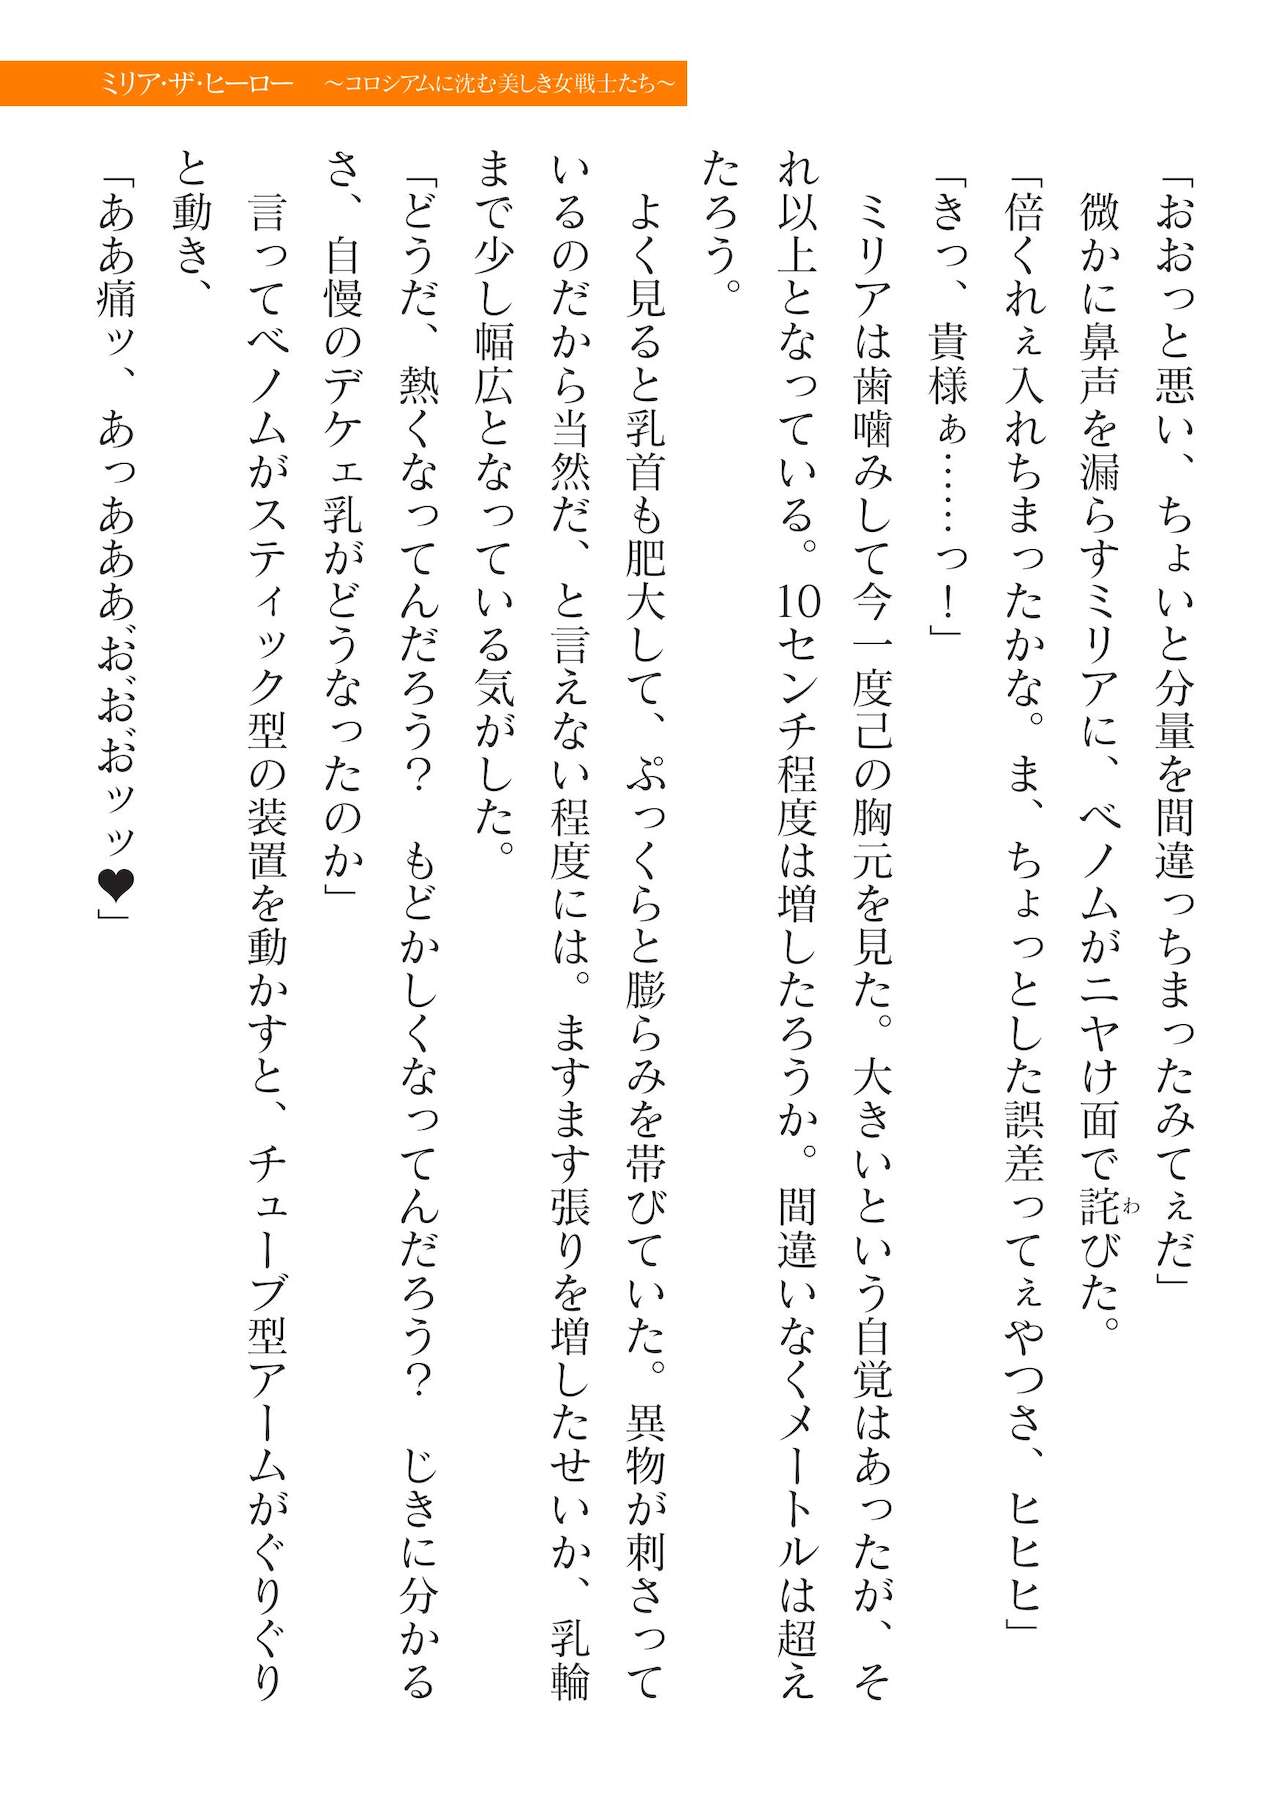 ミリア・ザ・ヒーロー　～コロシアムに沈む美しき女戦士たち～
「おおっと悪い、ちょいと分量を間違っちまったみてぇだ」
　微かに鼻声を漏らすミリアに、ベノムがニヤけ面で詫わびた。
「倍くれぇ入れちまったかな。ま、ちょっとした誤差ってぇやつさ、ヒヒヒ」
「きっ、貴様ぁ……っ！」
　ミリアは歯噛みして今一度己の胸元を見た。大きいという自覚はあったが、そ
れ以上となっている。10センチ程度は増したろうか。間違いなくメートルは超え
たろう。
　よく見ると乳首も肥大して、ぷっくらと膨らみを帯びていた。異物が刺さって
いるのだから当然だ、と言えない程度には。ますます張りを増したせいか、乳輪
まで少し幅広となっている気がした。
「どうだ、熱くなってんだろう？　もどかしくなってんだろう？　じきに分かる
さ、自慢のデケェ乳がどうなったのか」
　言ってベノムがスティック型の装置を動かすと、チューブ型アームがぐりぐり
と動き、
「ああ痛ッ、あっあああ゛お゛お゛おッッ♥」